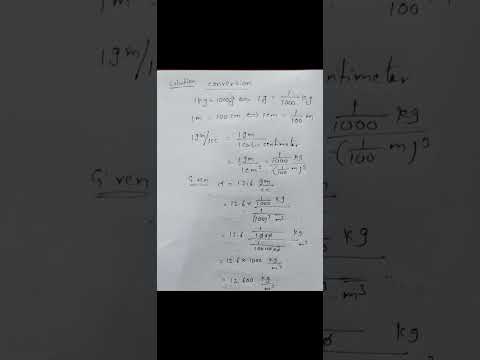 Solution conversion
1 kg = 1000g or 1g = 1/1000 kg
1m = 100 cm or 1cm = 1/100 m
1 gm/cc = 1 gm / 1 cubic centimeter
= 1 gm / 1 cm³ = 1/1000 kg / (1/100 m)³
Given = 12.6 gm/cc
= 12.6 × 1/1000 kg / 1/(100)³ m³
= 12.6 1/1000 / 1/1000000 kg/m³
= 12.6 × 1000 kg/m³
= 12,600 kg/m³